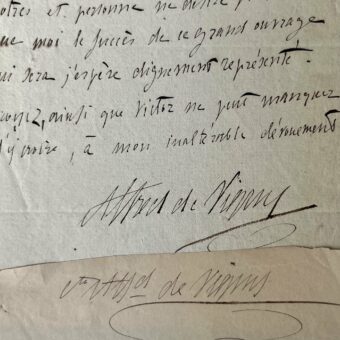 vôtres et personne ne désire p
que moi le succès de ce grand ouvrage
qui sera j'espère dignement représenté.
royez, ainsi que Victor ne peut manquer
d'y croire, à mon inaltérable dévouement
Alfred de Vigny
cte Alfd de Vigny